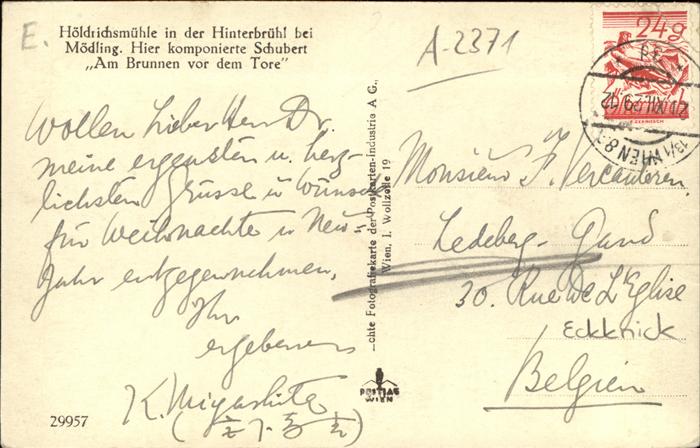 E.
Höldrichsmühle in der Hinterbrühl bei
Mödling. Hier komponierte Schubert
„Am Brunnen vor dem Tore"
Wollen Lieber Herr Dr.
meine ergensten u. herz-
lichsten Grüsse u Wünsche
für Weihnachte u Neu-
Jahr entgegennehmen.
Ihr
ergebener
K. Miyashita
29957
chte Fotografiekarte der Postkarten-Industrie A G.,
Wien, I. Wollzeile 19
POSTIAG
WIEN
A-2371
24g
WIEN
Monsieur F. Vercauteren.
Ledeberg-Gand
30. Rue de L'Eglise
Eckhick
Belgien